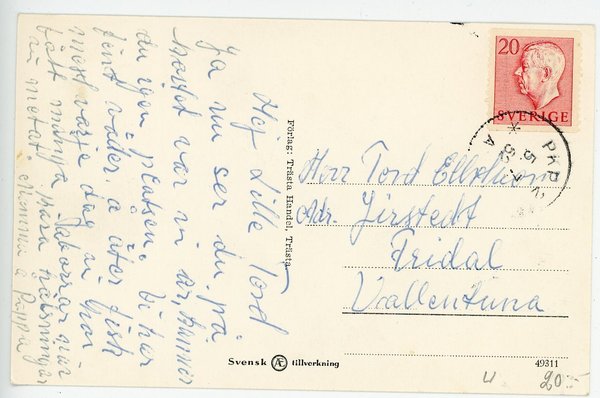 Hej Lille Tord
Ja nu ser du på
kortet var vi är, känner
du igen platsen. Vi har
fint väder, o äter fisk
mest varje dag vi har
fått många abborrar när
vi metat. Mamma o Pappa
Förlag: Trästa Handel, Trästa
20
SVERIGE
PKP
Herr Tord
Adr. Jirstedt
Fridal
Vallentuna
Svensk Æ tillverkning
49311
20